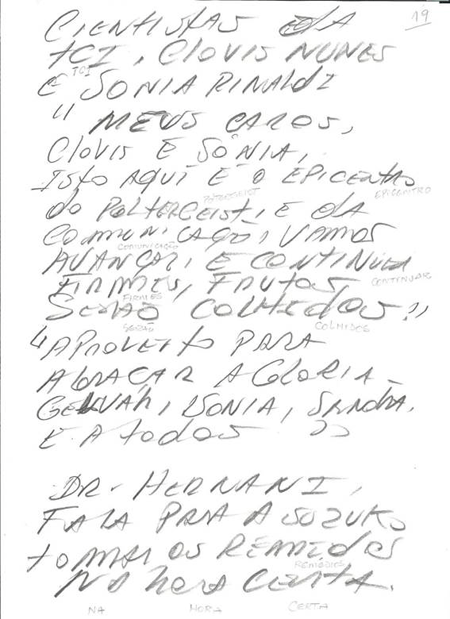 19
CIENTISTAS DA
TCI, CLOVIS NUNES
TCI
E SONIA RINALDI
" MEUS CAROS,
CLOVIS E SÔNIA,
ISTO AQUI É O EPICENTRO
POLTERGEIST EPICENTRO
DO POLTERGEIST, E DA
COMUNICAÇÃO, VAMOS
COMUNICAÇÃO
AVANÇAR, E CONTINUAR
CONTINUAR
FIRMES, FRUTOS
FIRMES
SERÃO COLHIDOS!"
SERÃO COLHIDOS
"APROVEITO PARA
ABRAÇAR A GLORIA
SONIA, SANDRA.
E A TODOS "
DR. HERNANI,
FALA PARA A SUZUKO
TOMAR OS REMÉDIOS
REMÉDIOS
NA HORA CERTA.
NA HORA CERTA